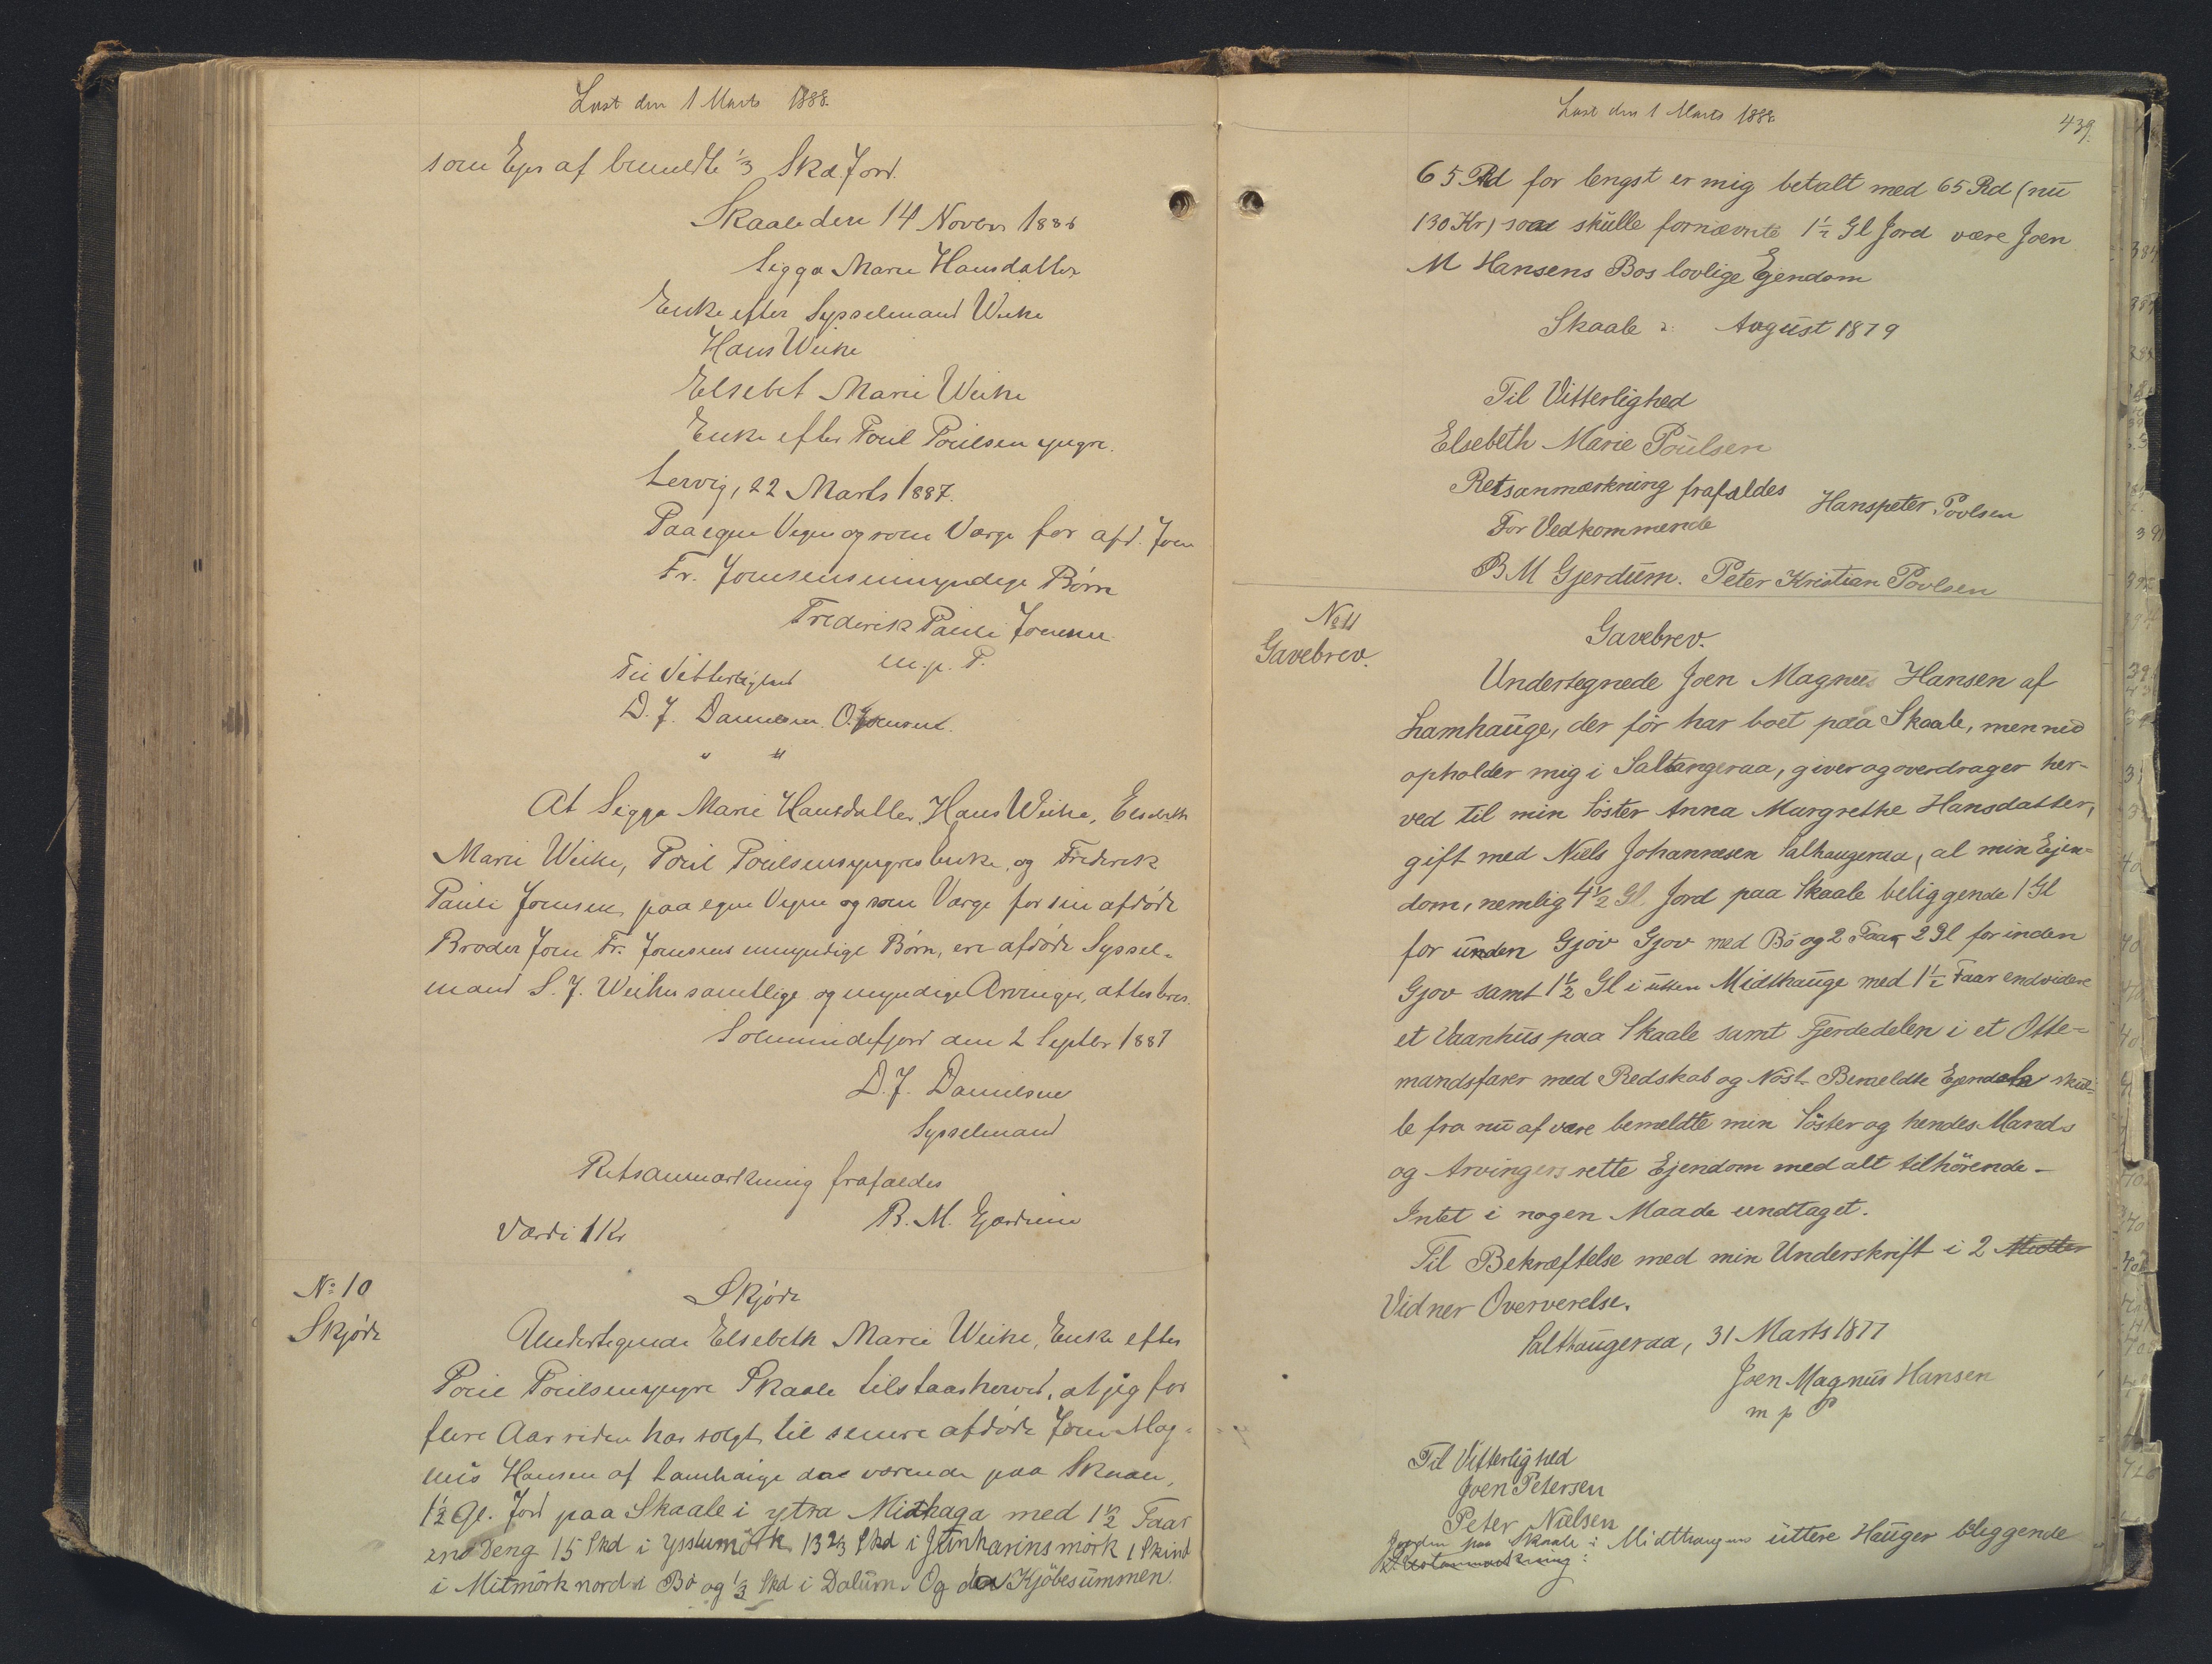 Læst den 1 Marts 1888.
som Ejer af bemeldte 1/3 Skd. Jord.
Skaale den 14 Novbr 1886
Sigga Marie Hansdatter
Enke efter Sysselmand Weihe
Hans Weihe
Elsebet Marie Weihe
Enke efter Poul Poulsen yngre.
Lervig, 22 Marts 1887.
Paa egne Vegne og som Værge for afd. Joen
Fr. Joensens umyndige Børn
Frederik Pauli Joensen
m. p. P.
Til Vitterlighed
D. J. Danielsen. O. Joensen.
" "
At Sigga Marie Hansdatter, Hans Weihe, Elsebeth
Marie Weihe, Poul Poulsens yngres Enke, og Frederik
Pauli Joensen, paa egne Vegne og som Værge for sin afdøde
Broder Joen Fr. Joensens umyndige Børn, ere afdøde Syssel-
mand S. J. Weihes samtlige og myndige Arvinger, attesteres.
Solmundefjord den 2 Septbr 1887
D. J. Danielsen
Sysselmand
Retsanmærkning frafaldes
Værdi 1 Kr
B. M. Gjerdrum
No 10
Skjøde
Skjøde
Undertegnede Elsebeth Marie Weihe, Enke efter
Poul Poulsen yngre Skaale tilstaar herved, at jeg for
flere Aar siden har solgt til senere afdøde Joen Mag-
nus Hansen af Lamhauge da værende paa Skaale,
1½ Gl. Jord paa Skaale i ytra Midhaga med 1½ Faar
end Deng 15 Skd i 13 2/3 Skd i 1 Skind
i Mitmörk nord Bø og 1/3 Skd i Dalum. Og da Kjöbesummen
Læst den 1 Marts 1888.
439.
65 Rd for lengst er mig betalt med 65 Rd (nu
130 Kr) saa skulle fornævnte 1½ Gl Jord være Joen
M Hansens Bos lovlige Ejendom
Skaale August 1879
Til Vitterlighed
Elsebeth Marie Poulsen
Retsanmærkning frafaldes Hanspeter Povlsen
For Vedkommende
B M Gjerdum. Peter Kristian Povlsen
No 11
Gavebrev.
Gavebrev.
Undertegnede Joen Magnus Hansen af
Lamhauge, der för har boet paa Skaale, men nu
opholder mig i Saltangeraa, giver og overdrager her-
ved til min Söster Anna Margrethe Hansdatter,
gift med Niels Johannesen Salhaugeraa, al min Ejen-
dom, nemlig 4½ Gl. Jord paa Skaale beliggende 1 Gl
for unden Gjov Gjov med Bö og 2 Faar 2 Gl for inden
Gjov samt 1½ Gl i utten Midthauge med 1½ Faar endvidere
et Vaanhus paa Skaale samt Fjerdedelen i et Otte-
mandsfarer med Redskab og Nöst. Bemeldte Ejendele skul-
le fra nu af være bemeldte min Söster og hendes Mands
og Arvingers rette Ejendom med alt tilhörende –
Intet i nogen Maade undtaget.
Til Bekræftelse med min Underskrift i 2
Vidner Oververelse.
Salthaugeraa, 31 Marts 1877
Joen Magnus Hansen
m p P
Til Vitterlighed
Joen Petersen
Peter Nielsen
Jorden paa Skaale i Midthaugens uttere Hauger beliggende